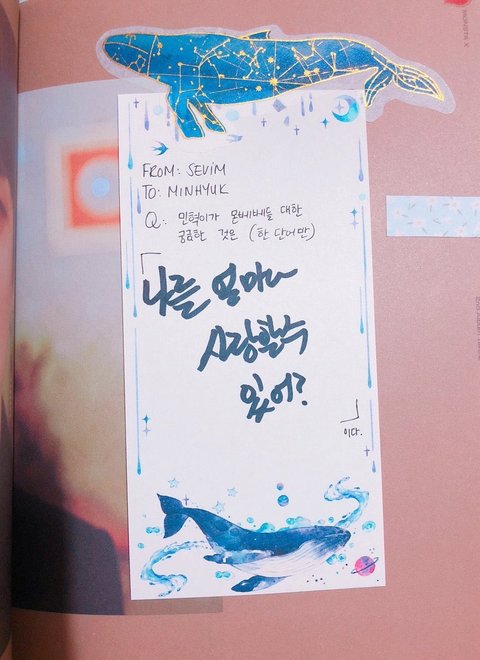 MONSTA X
FROM: SEVIM
TO: MINHYUK
Q: 민혁이가 몬베베들 대한
궁금한 것은 (한 단어만)
「나를 얼마나
사랑할수
있어?
」
이다.